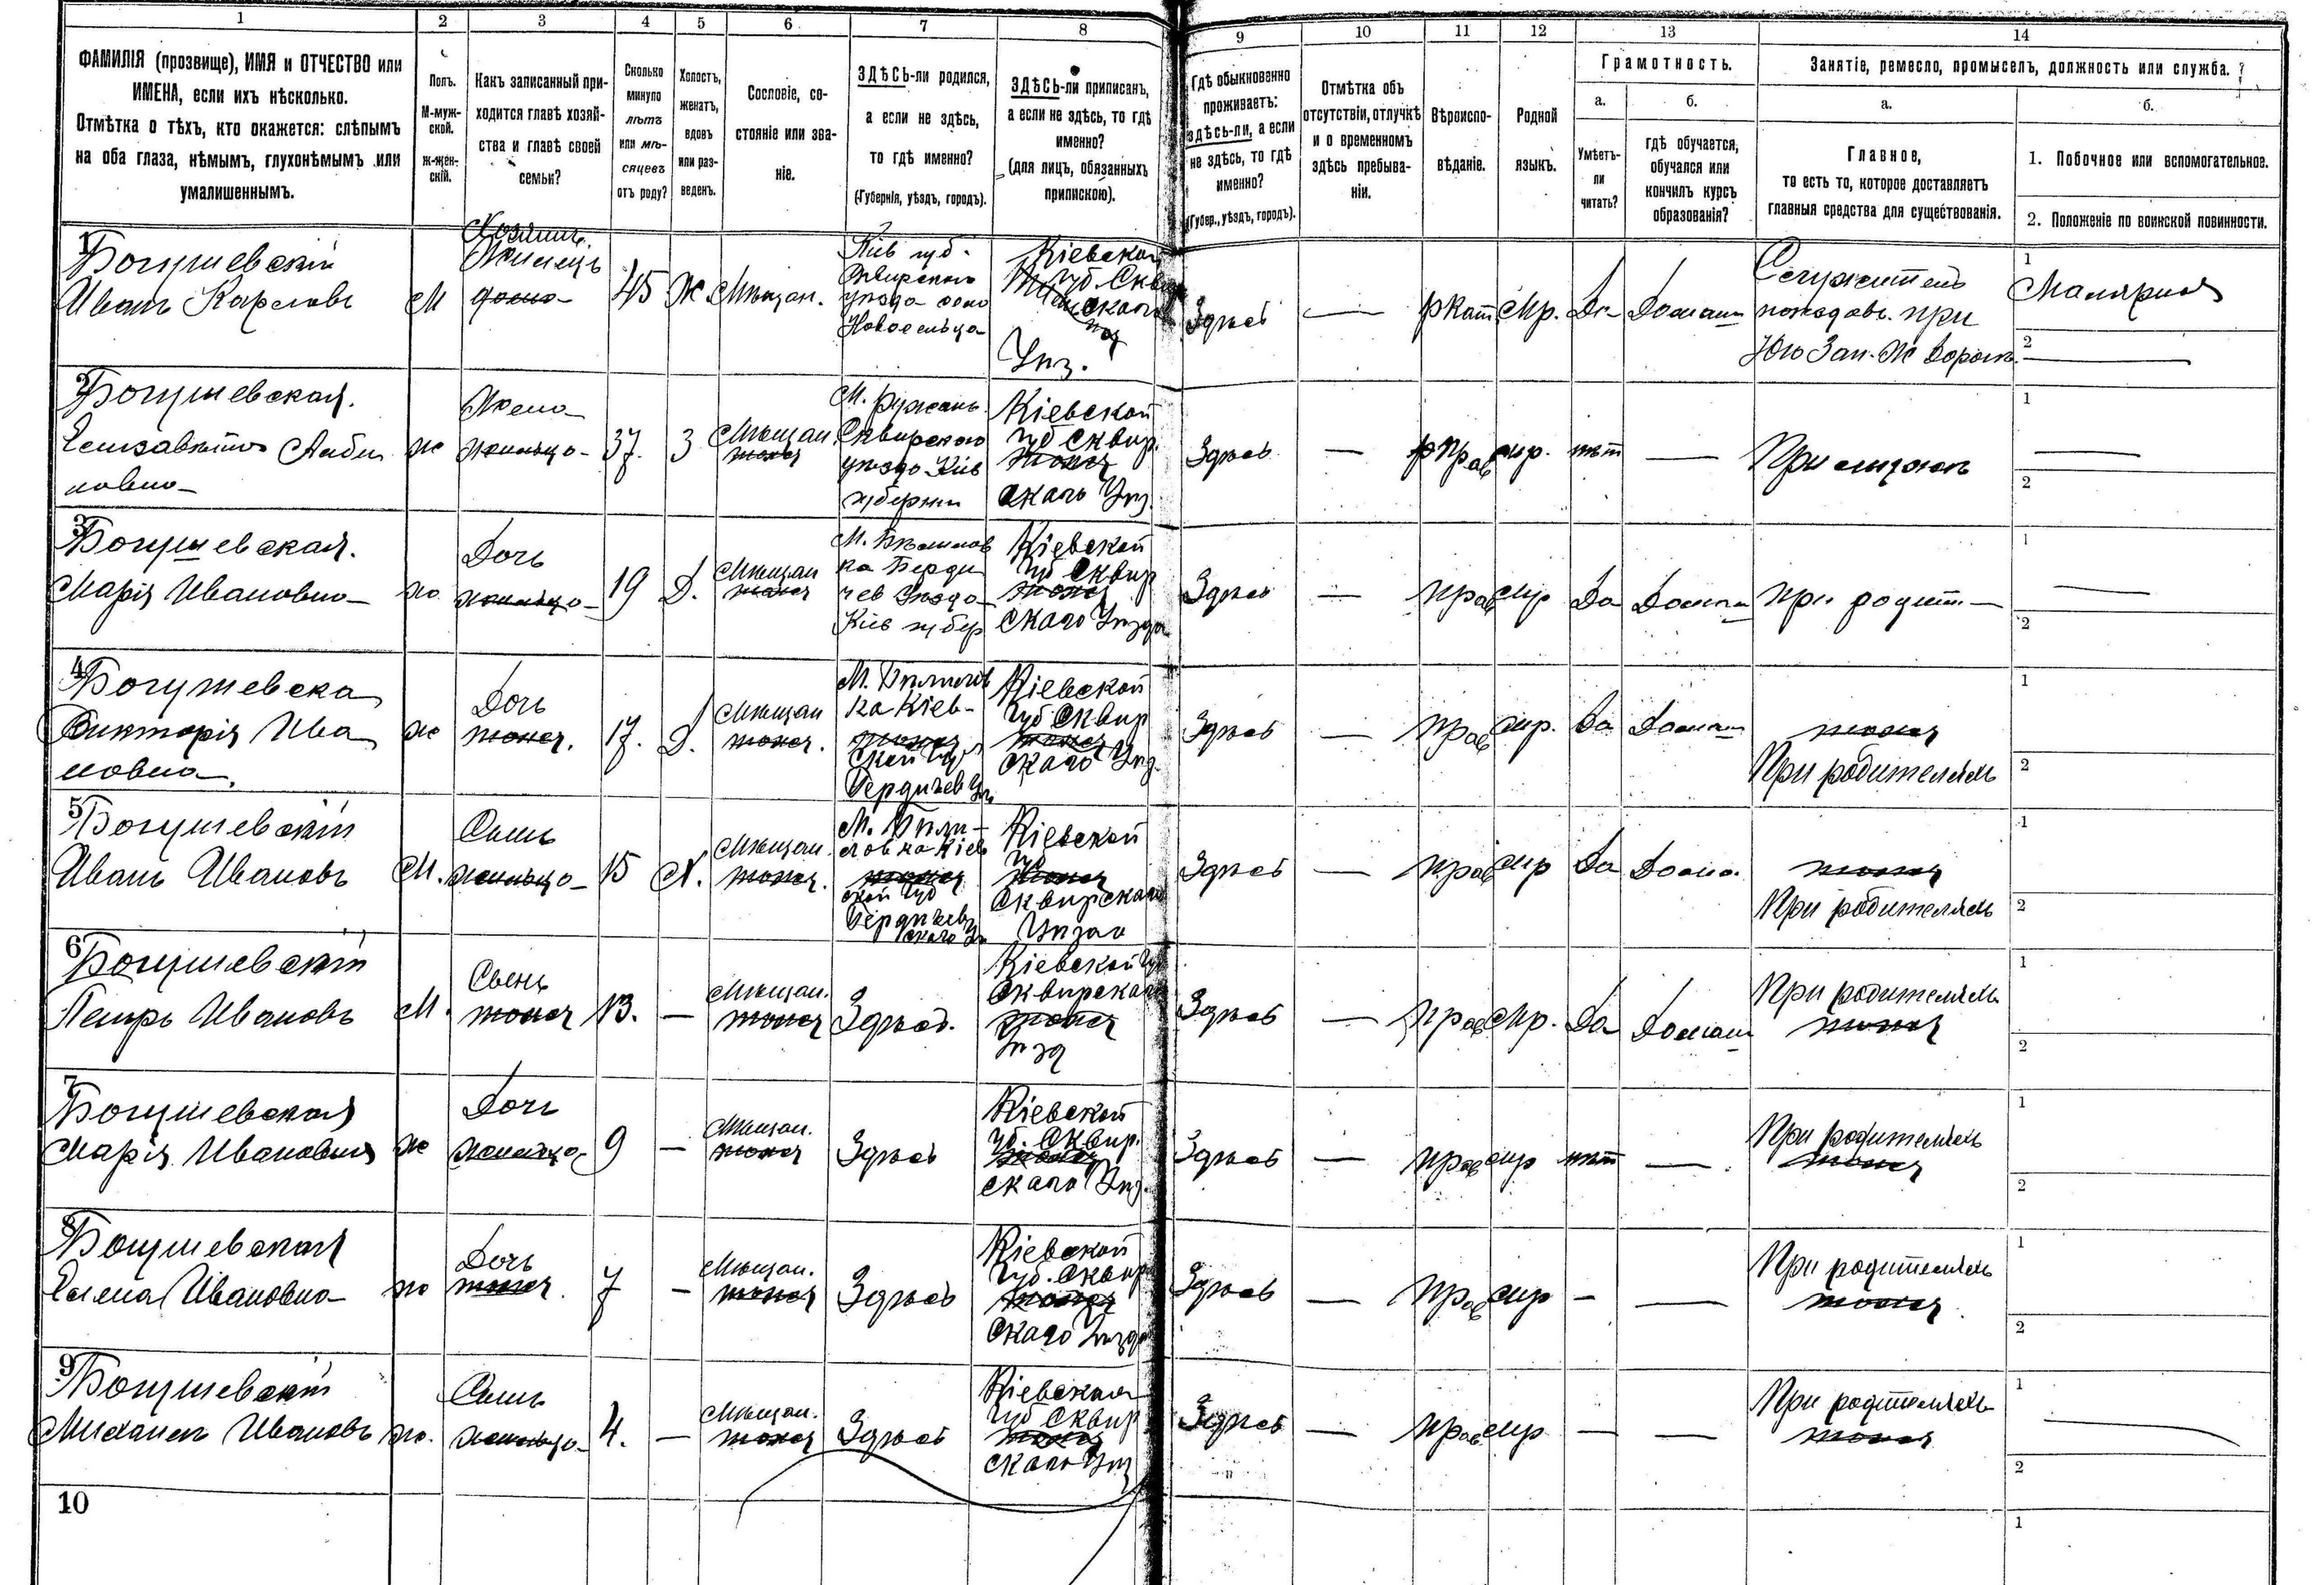 1
2
3
4
5
6
7
8
9
10
11
12
13
14
ФАМИЛІЯ (прозвище), ИМЯ и ОТЧЕСТВО или
ИМЕНА, если ихъ нѣсколько.
Отмѣтка о тѣхъ, кто окажется: слѣпымъ
на оба глаза, нѣмымъ, глухонѣмымъ или
умалишеннымъ.
Полъ.
М-муж-
ской.
ж-жен-
скій.
Какъ записанный при-
ходится главѣ хозяй-
ства и главѣ своей
семьи?
Сколько
минуло
лѣтъ
или мѣ-
сяцевъ
отъ роду?
Холостъ,
женатъ,
вдовъ
или раз-
веденъ.
Сословіе, со-
стояніе или зва-
ніе.
ЗДѢСЬ-ли родился,
а если не здѣсь,
то гдѣ именно?
(Губернія, уѣздъ, городъ).
ЗДѢСЬ-ли приписанъ,
а если не здѣсь, то гдѣ
именно?
(для лицъ, обязанныхъ
припискою).
Гдѣ обыкновенно
проживаетъ:
здѣсь-ли, а если
не здѣсь, то гдѣ
именно?
(Губер., уѣздъ, городъ).
Отмѣтка объ
отсутствіи, отлучкѣ
и о временномъ
здѣсь пребыва-
ніи.
Вѣроиспо-
вѣданіе.
Родной
языкъ.
Грамотность.
а.
Умѣетъ-
ли
читать?
б.
гдѣ обучается,
обучался или
кончилъ курсъ
образованія?
Занятіе, ремесло, промыселъ, должность или служба.
а.
Главное,
то есть то, которое доставляетъ
главныя средства для существованія.
б.
1. Побочное или вспомогательное.
2. Положеніе по воинской повинности.
1
Богушевскій
Иванъ Карловъ
М
Хозяинъ
Жилецъ
45
Ж.
Мѣщан.
Кіев губ.
Сквирскаго
уѣзда село
Новоселица
Кіевской
Губ. Сквир
скаго
Уѣз.
Здѣсь
—
рКат.
Мр.
Да
Домаш
Служитель
при
Юго Зап. Ж Дорогѣ
1
Малярная
2
2
Богушевская.
Елизавѣта Аѳби
новна
ж
Жена
жильца
37.
З
Мѣщан.
тоже
М. Ружинъ
Сквирскаго
уѣзда Кіев
губерніи
Кіевской
губ Сквир.
тоже
скаго Уѣз.
Здѣсь
—
Прав
мр.
нѣт
—
При мужѣ
1
2
3
Богушевская.
Марія Ивановна
ж.
Дочь
жильца
19
Д.
Мѣщан
тоже
М. Бѣлилов
ка Берди
чев Уѣзда
Кіев губер
Кіевской
Губ Сквир
тоже
скаго Уѣзда
Здѣсь
—
Прав
Мр
Да
Домаш
При родит
1
2
4
Богушевска
Викторія Ива
новна
ж
Дочь
тоже.
17.
Д.
Мѣщан
тоже.
М. Бѣлилов
ка Кіев-
тоже
ской Губ
Бердичев Уѣ
Кіевской
Губ Сквир
тоже
скаго Уѣз.
Здѣсь
—
Прав
мр.
Да
Домаш
тоже
При родителяхъ
1
2
5
Богушевскій
Иванъ Ивановъ
М.
Сынъ
жильца
15
Х.
Мѣщан.
тоже.
М. Бѣли-
ловка Кіев
тоже
ской Губ
Бердичев
скаго Уѣ
Кіевской
Губ
тоже
Сквирскаго
Уѣзда
Здѣсь
—
Прав
мр
Да
Дома.
тоже
При родителяхъ
1
2
6
Богушевскій
Петръ Ивановъ
М.
Сынъ
тоже
13.
—
Мѣщан.
тоже
Здѣсь.
Кіевской Гу
Сквирскаго
тоже
Уѣзд
Здѣсь
—
Прав
Мр.
Да
Домаш
При родителяхъ
тоже
1
2
7
Богушевская
Марія Ивановна
ж
Дочь
жильца
9
—
Мѣщан.
тоже
Здѣсь
Кіевской
Губ. Сквир.
тоже
скаго Уѣз.
Здѣсь
—
Прав
мр
нѣт
—
При родителяхъ
тоже
1
2
8
Богушевская
Елена Ивановна
ж
Дочь
тоже.
7
—
Мѣщан.
тоже
Здѣсь
Кіевской
Губ. Сквир
тоже
скаго Уѣзда
Здѣсь
—
Прав
мр
—
—
При родителяхъ
тоже
1
2
9
Богушевскій
Михаилъ Ивановъ
ж.
Сынъ
жильца
4.
—
Мѣщан.
тоже
Здѣсь
Кіевской
Губ Сквир
тоже
скаго Уѣз
Здѣсь
—
Прав
мр
—
—
При родителяхъ
тоже
1
2
10
1